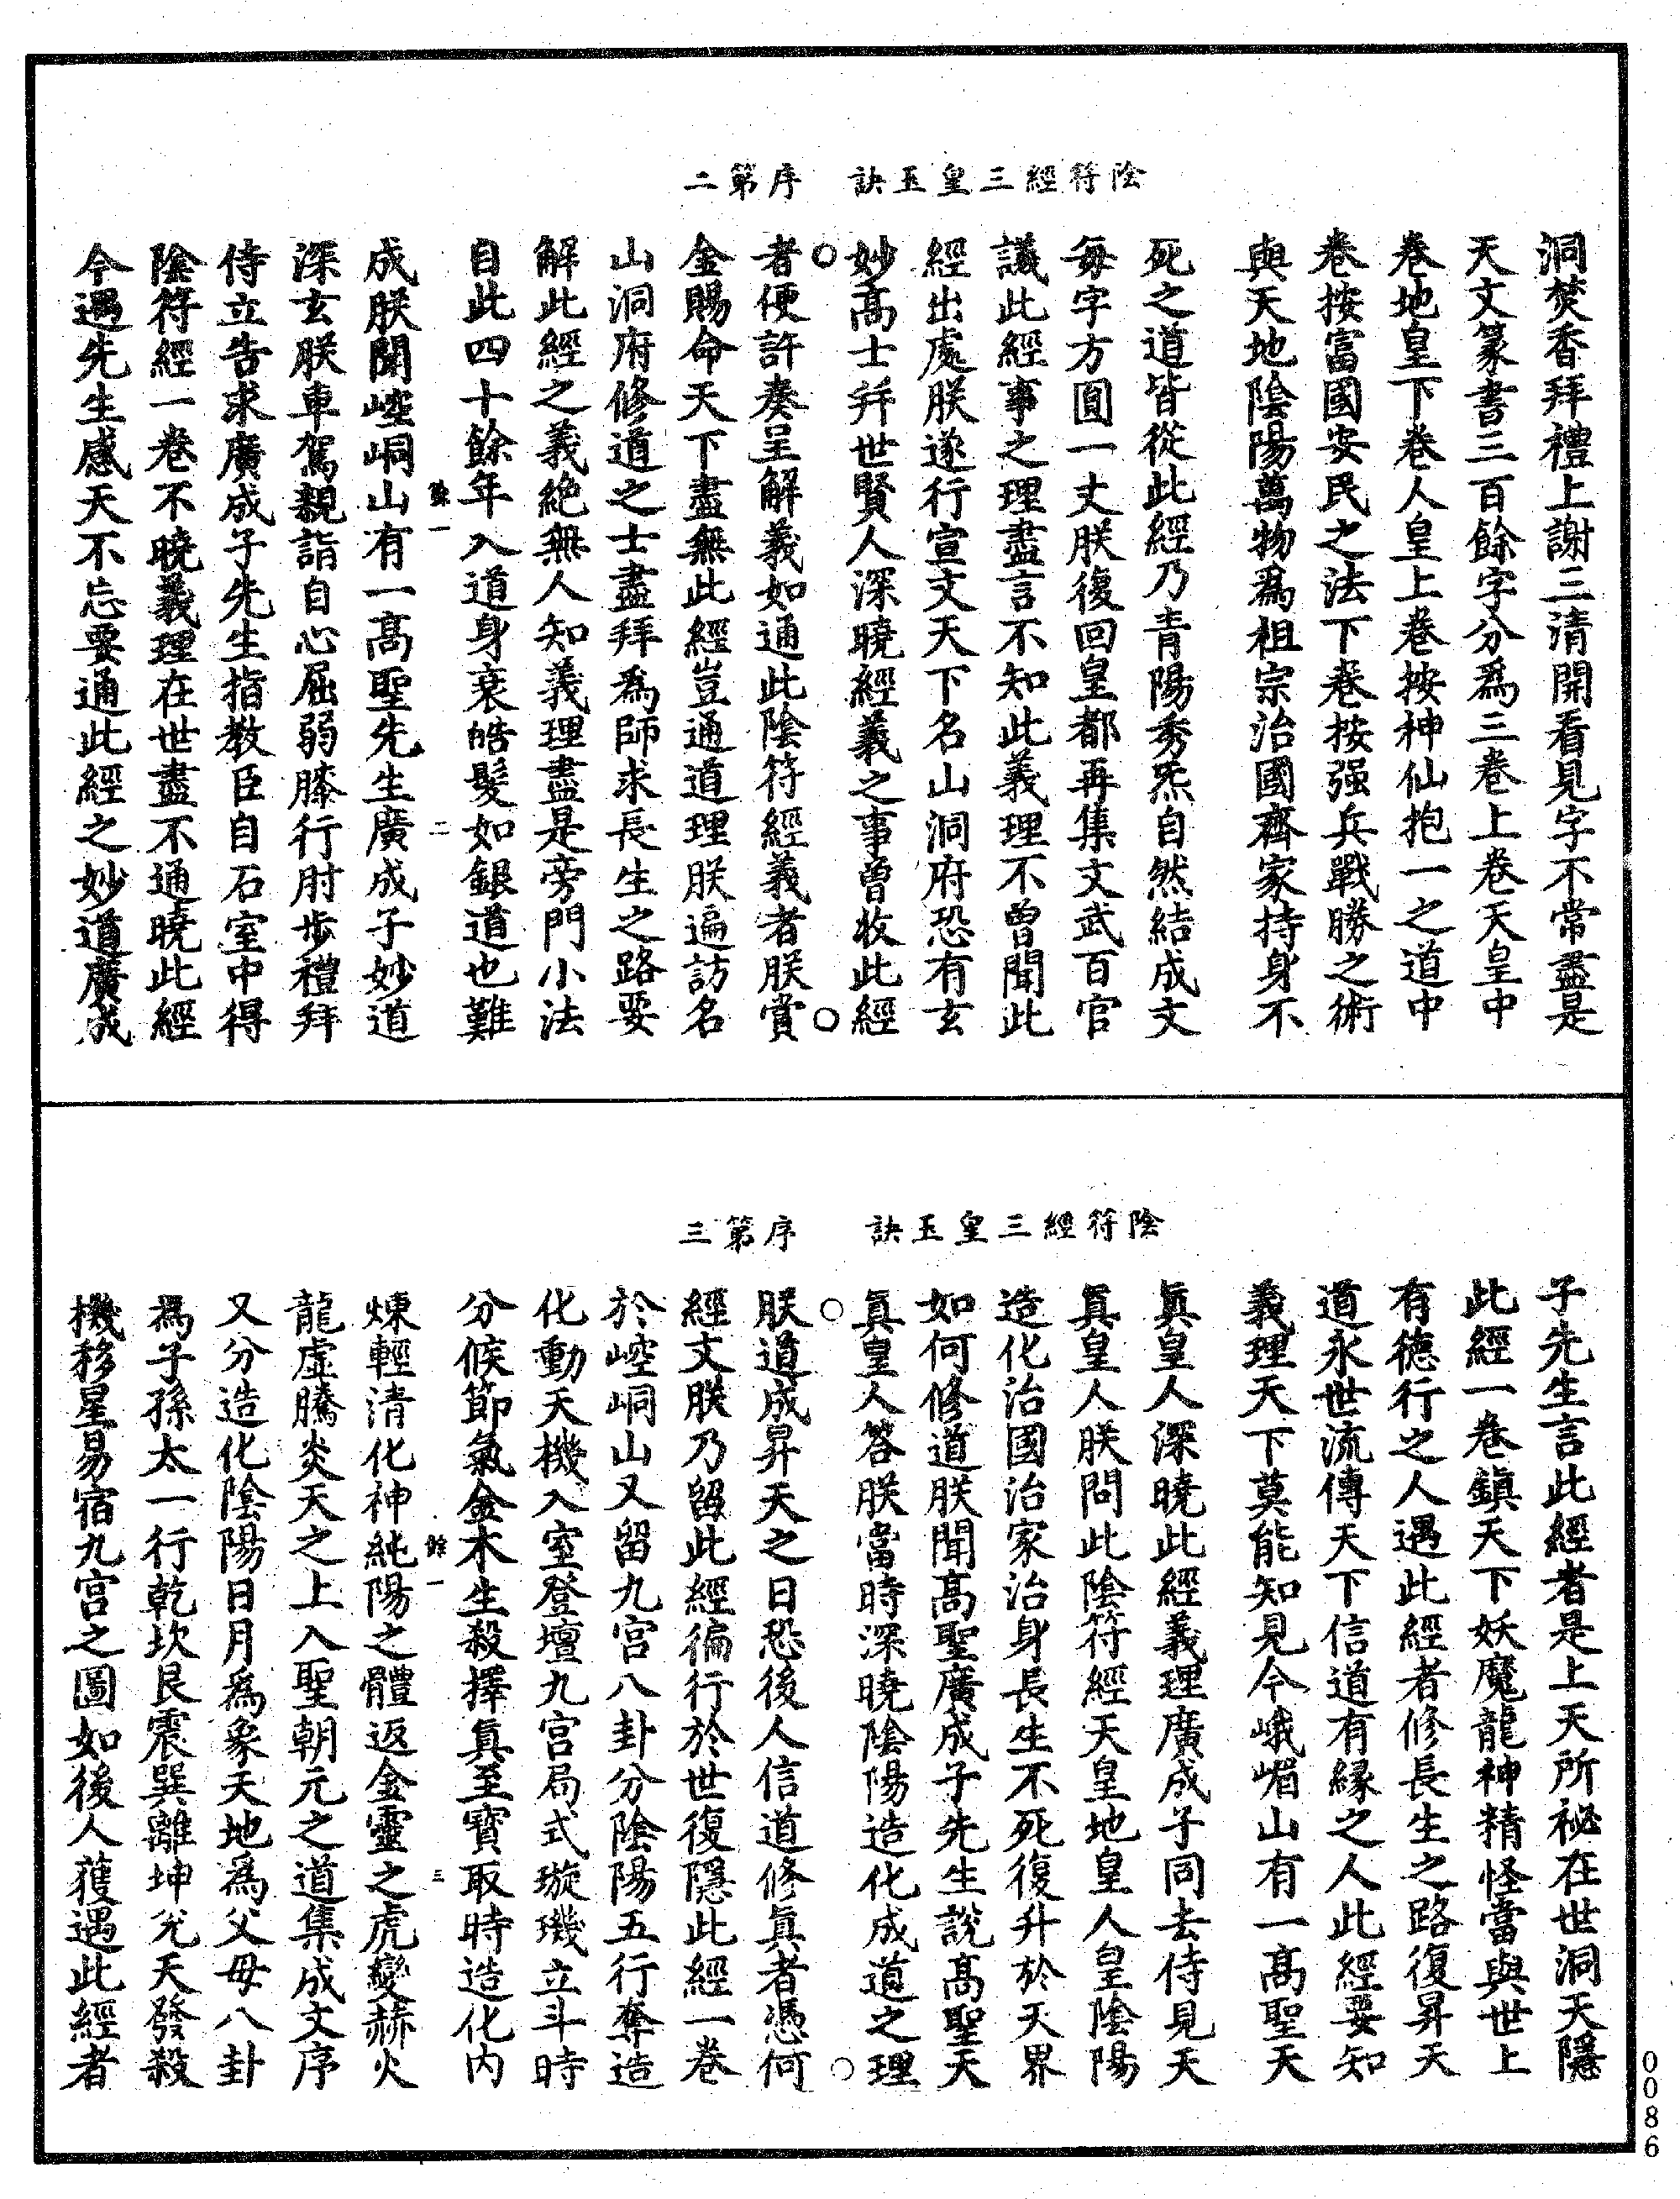 陰符經三皇玉訣　序第二
洞焚香拜禮上謝三清開看見字不常盡是
天文篆書三百餘字分爲三卷上卷天皇中
卷地皇下卷人皇上卷按神仙抱一之道中
卷按富國安民之法下卷按强兵戰勝之術
與天地陰陽萬物爲祖宗治國齊家持身不
死之道皆從此經乃青陽秀炁自然結成文
每字方圓一丈朕復回皇都再集文武百官
議此經事之理盡言不知此義理不曾聞此
經出處朕遂行宣文天下名山洞府恐有玄
妙高士并世賢人深曉經義之事曾收此經
者便許奏呈解義如通此陰符經義者朕賞
金賜命天下盡無此經豈通道理朕遍訪名
山洞府修道之士盡拜爲師求長生之路要
解此經之義絶無人知義理盡是旁門小法
自此四十餘年入道身衰皓髮如銀道也難
餘一　二
成朕聞崆峒山有一高聖先生廣成子妙道
深玄朕車駕親詣自心屈弱膝行肘步禮拜
侍立告求廣成子先生指教臣自石室中得
陰符經一卷不曉義理在世盡不通曉此經
今遇先生感天不忘要通此經之妙道廣成
陰符經三皇玉訣　序第三
子先生言此經者是上天所祕在世洞天隱
此經一卷鎮天下妖魔龍神精怪當與世上
有德行之人遇此經者修長生之路復昇天
道永世流傳天下信道有緣之人此經要知
義理天下莫能知見今峨嵋山有一高聖天
眞皇人深曉此經義理廣成子同去侍見天
眞皇人朕問此陰符經天皇地皇人皇陰陽
造化治國治家治身長生不死復升於天界
如何修道朕聞高聖廣成子先生說高聖天
眞皇人答朕當時深曉陰陽造化成道之理
朕道成昇天之日恐後人信道修眞者憑何
經文朕乃留此經徧行於世復隱此經一卷
於崆峒山又留九宮八卦分陰陽五行奪造
化動天機入室登壇九宮局式璇璣立斗時
分候節氣金木生殺擇眞至寳取時造化内
餘一　三
煉輕清化神純陽之體返金靈之虎變赫火
龍虛騰炎天之上入聖朝元之道集成文序
又分造化陰陽日月爲象天地爲父母八卦
爲子孫太一行乾坎艮震巽離坤兊天發殺
機移星易宿九宮之圖如後人獲遇此經者
0086